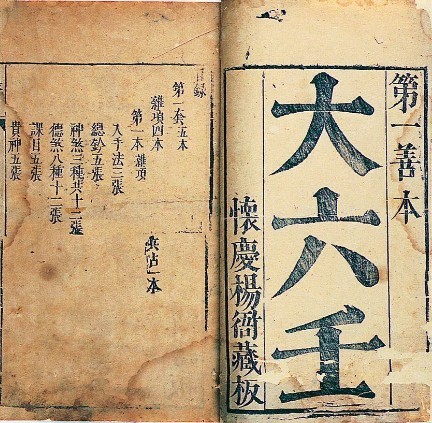 第一善本
大六壬
懷慶楊衙藏板
目錄
第一套五本
雜項四本 兵占一本
第一本 雜項
入手法三張
總鈔五張
神煞三種共十二張
德煞八種十二張
課目五張
貴神五張